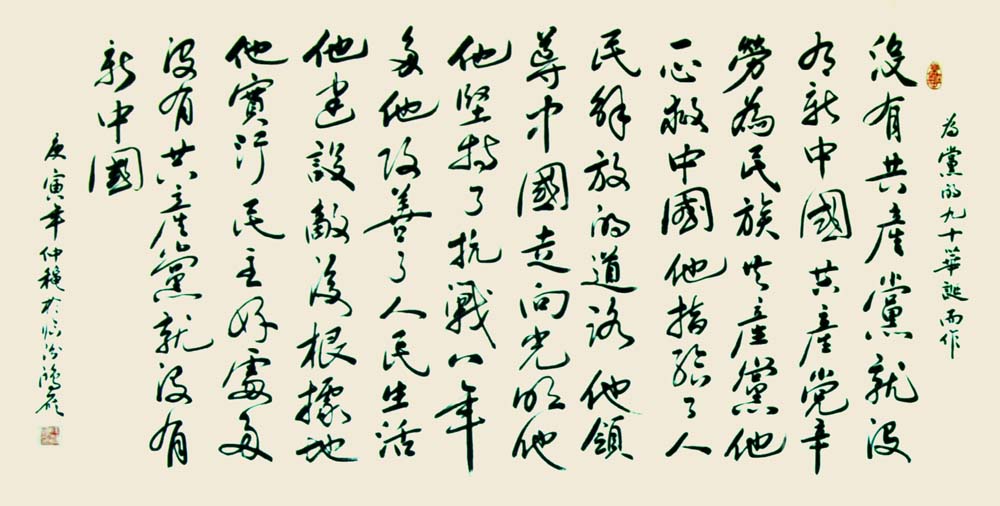 為黨的九十華誕而作
没有共產黨就没
有新中國共產党辛
勞為民族共產黨他
一心救中國他指給了人
民解放的道路他領
導中國走向光明他
他堅持了抗戰八年
多他改善了人民生活
他建設敵後根據地
他實行民主好處多
没有共產黨就没有
新中國
庚寅年仲穐於临汾